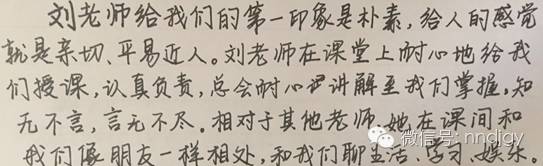 刘老师给我们的第一印象是朴素,给人的感觉
就是亲切、平易近人。刘老师在课堂上耐心地给我
们授课,认真负责,总会耐心地讲解至我们掌握,知
无不言,言无不尽。相对于其他老师,她在课间和
我们像朋友一样相处,和我们聊生活、学习、娱乐,
微信号: nndjgy